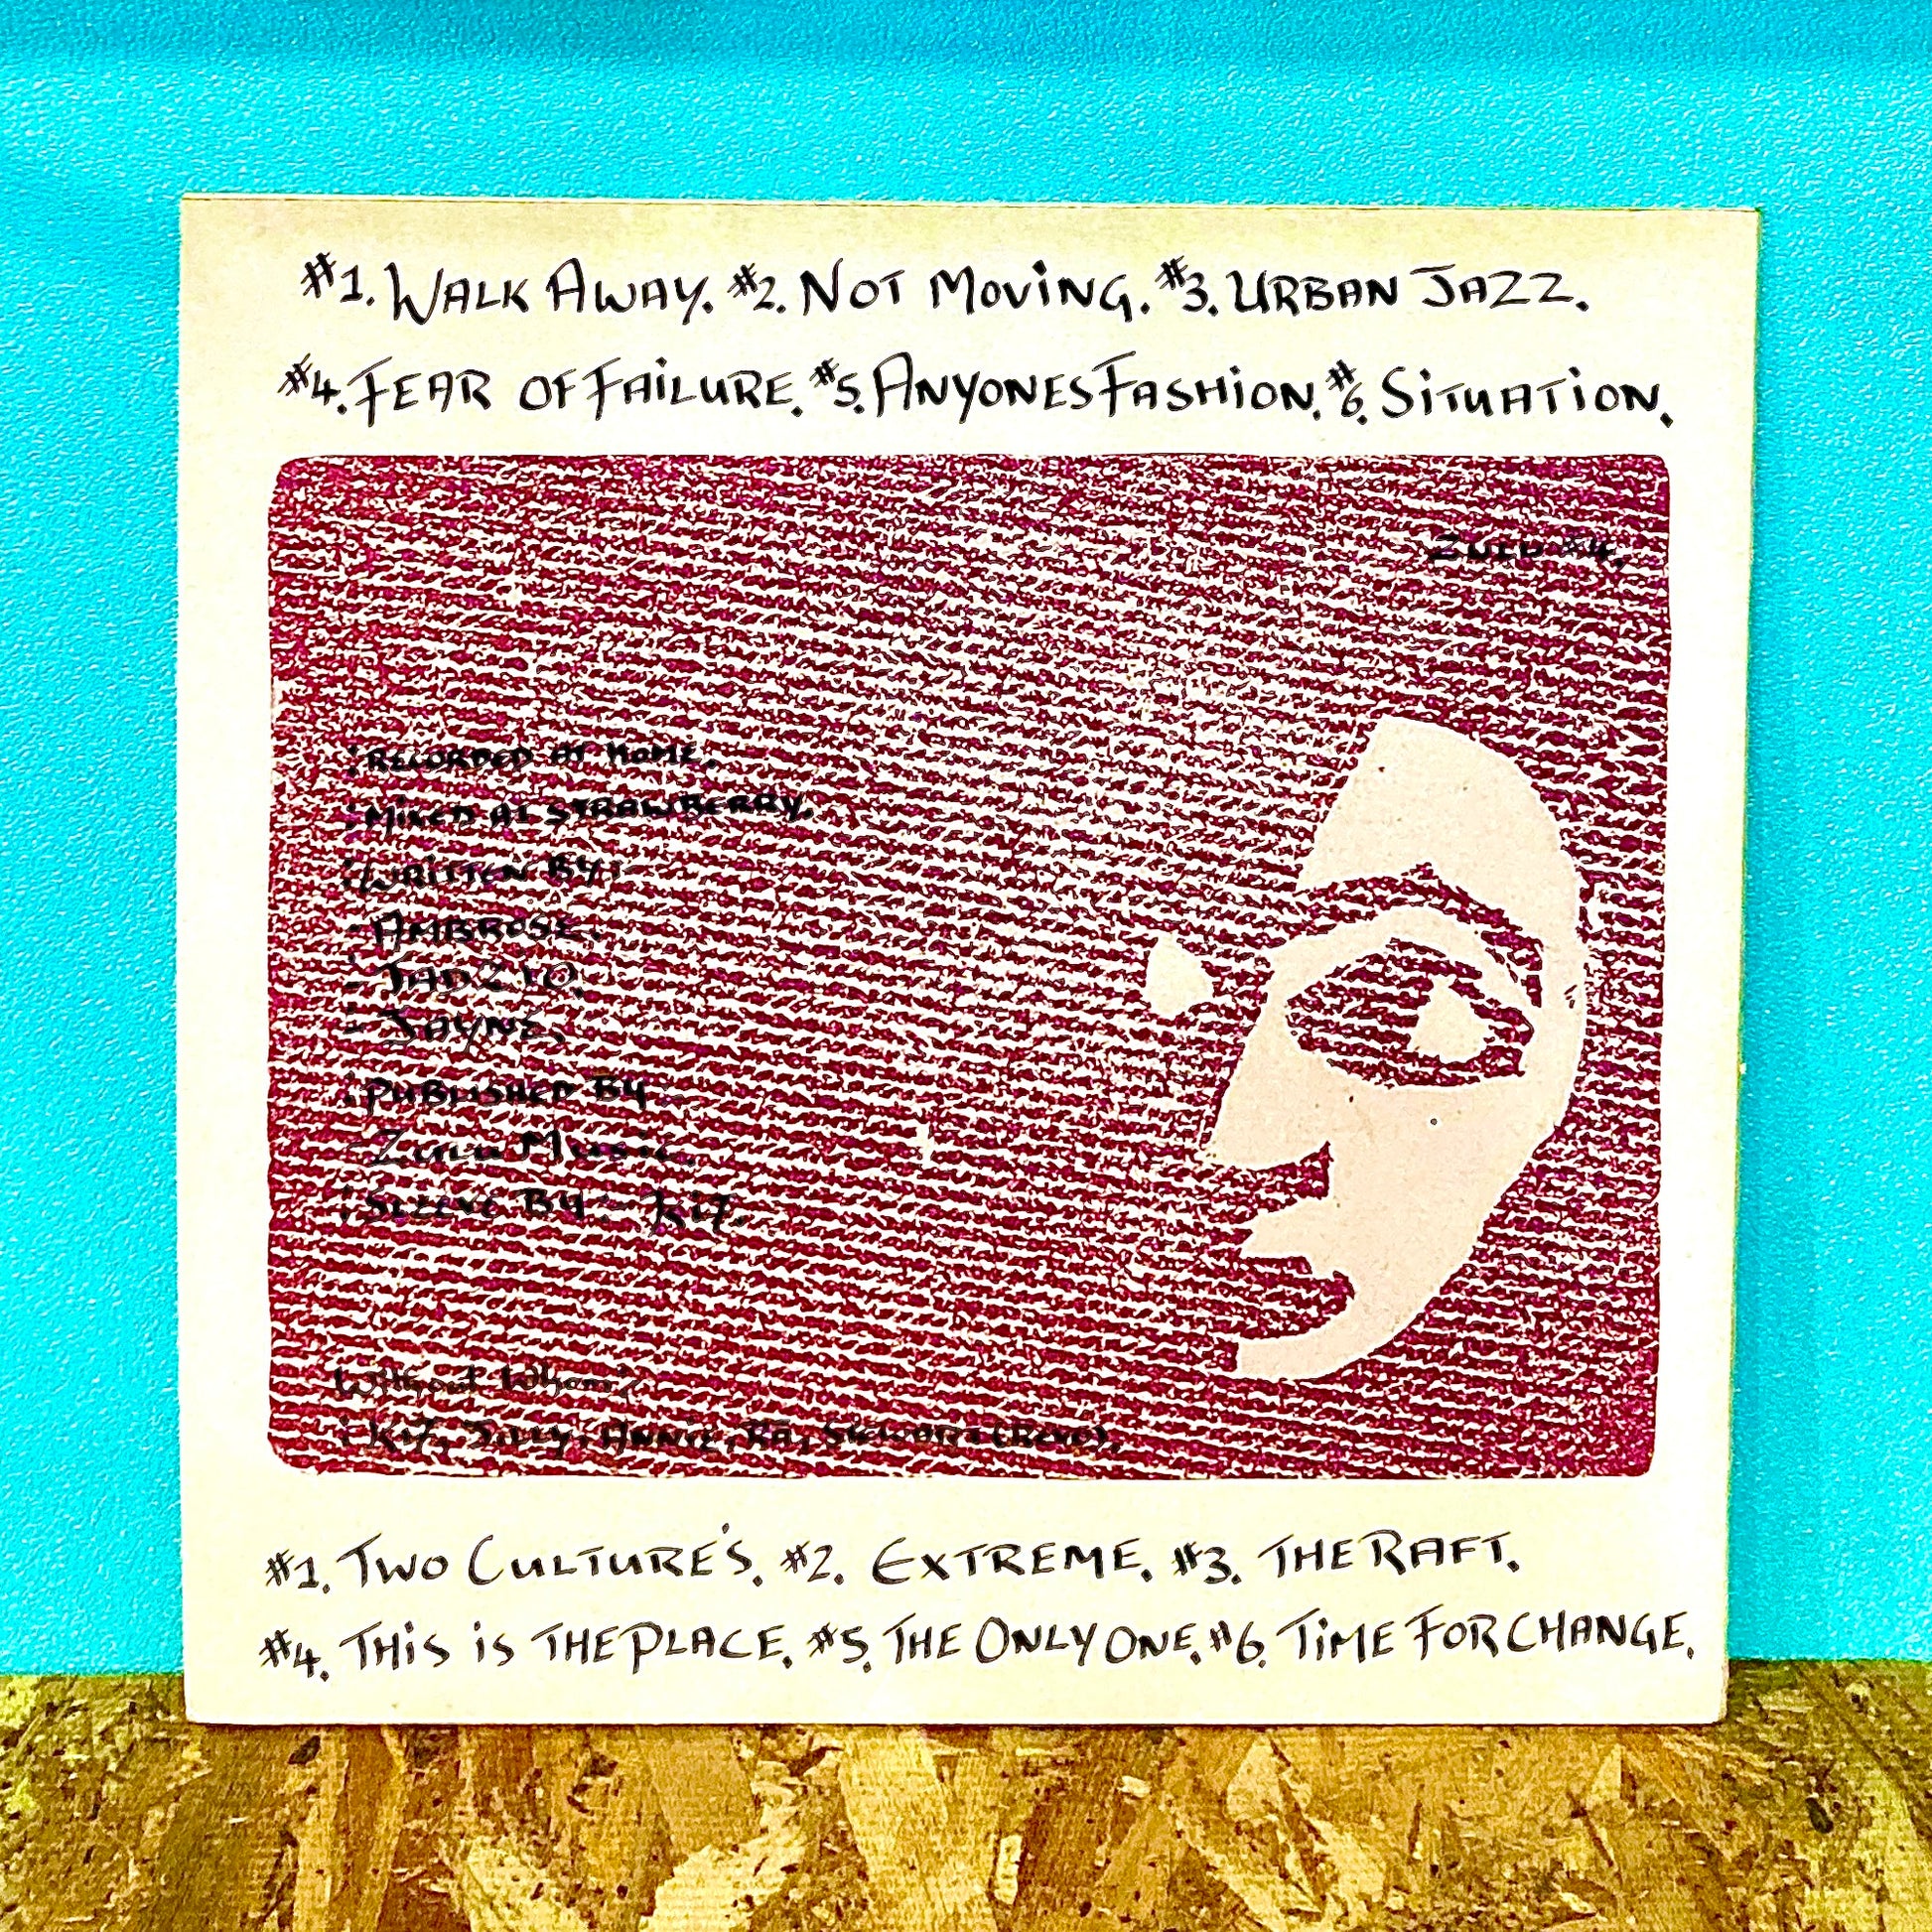 #1. WALK AWAY. #2. NOT MOVING. #3. URBAN JAZZ.
#4. FEAR OF FAILURE. #5. ANYONES FASHION. #6. SITUATION.
ZULU #4.
: RECORDED AT HOME.
: MIXED AT STRAWBERRY.
: WRITTEN BY:
- AMBROSE.
- TADZIO.
- JAYNE.
: PUBLISHED BY
- ZULU MUSIC.
: SLEEVE BY:- Kif.
Without Whom:
: Kif, JILLY, ANNIE, RA, STEWART (REVO).
#1. TWO CULTURE'S. #2. EXTREME. #3. THE RAFT.
#4. THIS IS THE PLACE. #5. THE ONLY ONE. #6. TIME FOR CHANGE.